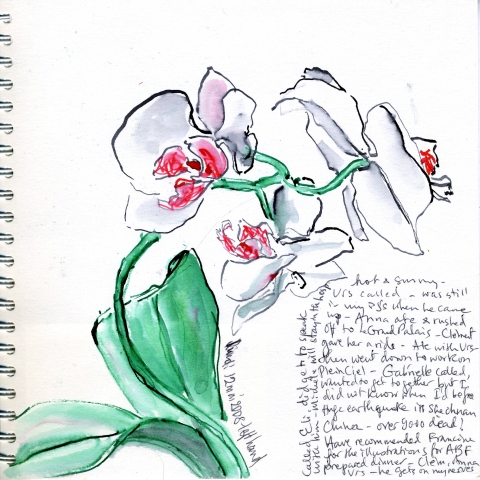 hot & sunny -
Urs called - was still
in my PJs when he came
up - Anna ate & rushed
off to Grand Palais - Clément
gave her a ride - Ate with Urs -
then went down to work on
Plein Ciel - Gabrielle called,
wanted to get together but I
did not know when I'd be free
huge earthquake in Shechuan
China - over 9000 dead!
Have recommended Francine
for the illustrations for ABF
prepared dinner - Clem, Anna
Urs - he gets on my nerves
did get to speak
with him
will stay
12 mai 2008